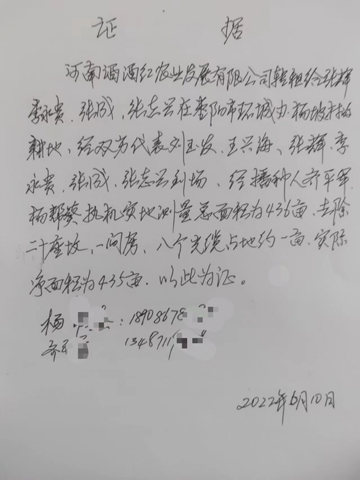 证 据
河南酒酒红农业发展有限公司转租给张辉
李永贵、张成、张志兴在枣阳市环城办杨坡村的
耕地，经双方代表刘玉发、王兴海、张辉、李
永贵、张成、张志兴到场，经播种人乔平军
杨帮葵执机实地测量总面积为436亩，去除
二十座坟，一间房，八个光缆占地约一亩，实际
净面积为435亩。以此为证。
杨 ：18908678
乔 13487119
2022年6月10日